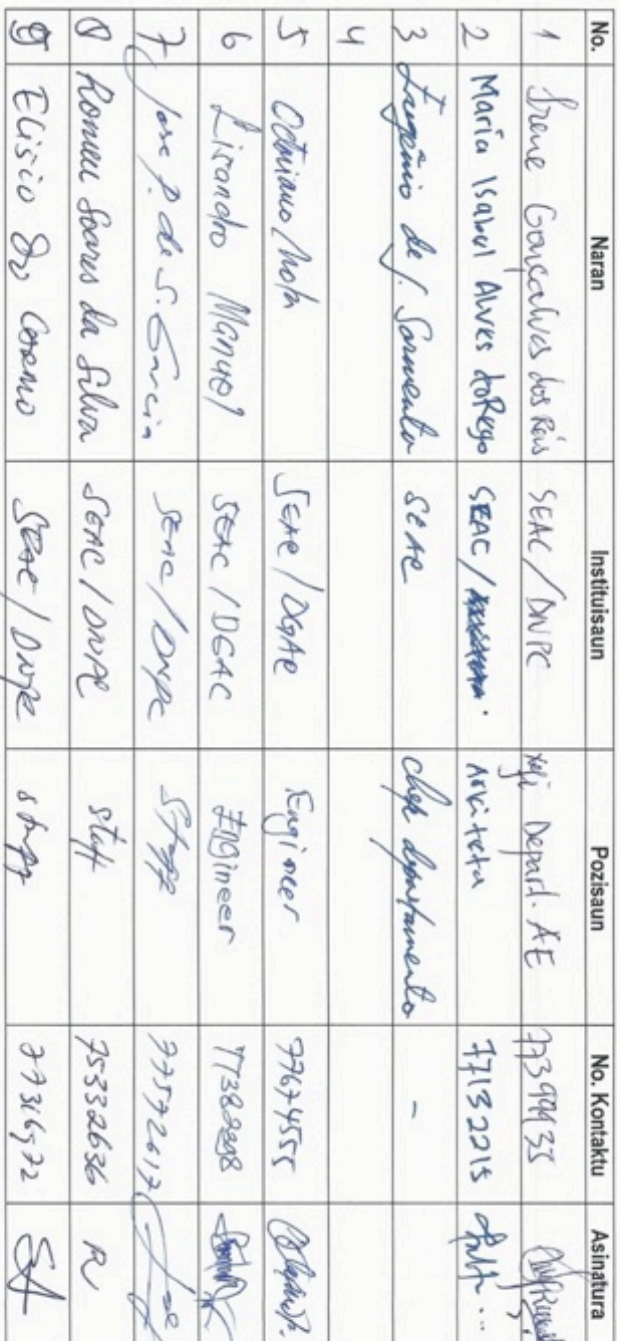 No. Naran Instituisaun Pozisaun No. Kontaktu Asinatura
1 Irene Gonçalves dos Reis SEAC/DNPC Depart. AE
2 Maria Isabel Alves do Rego SEAC/ Arkiteta 77132215
3 Eugénio de J. Sarmento SEAC chefe departamento -
4
5 Octaviano Mota SEAC/DGAC Engineer 77674555
6 Lisandro Manuel SEAC/DGAC Engineer 77382898
7 Jose P. de S. Garcia SEAC/DNPC Staff 77572617
8 Romeu Soares da Silva SEAC/DNPC staff 75332636
9 Elisio Do Carmo SEAC/DNPC staff 77316572